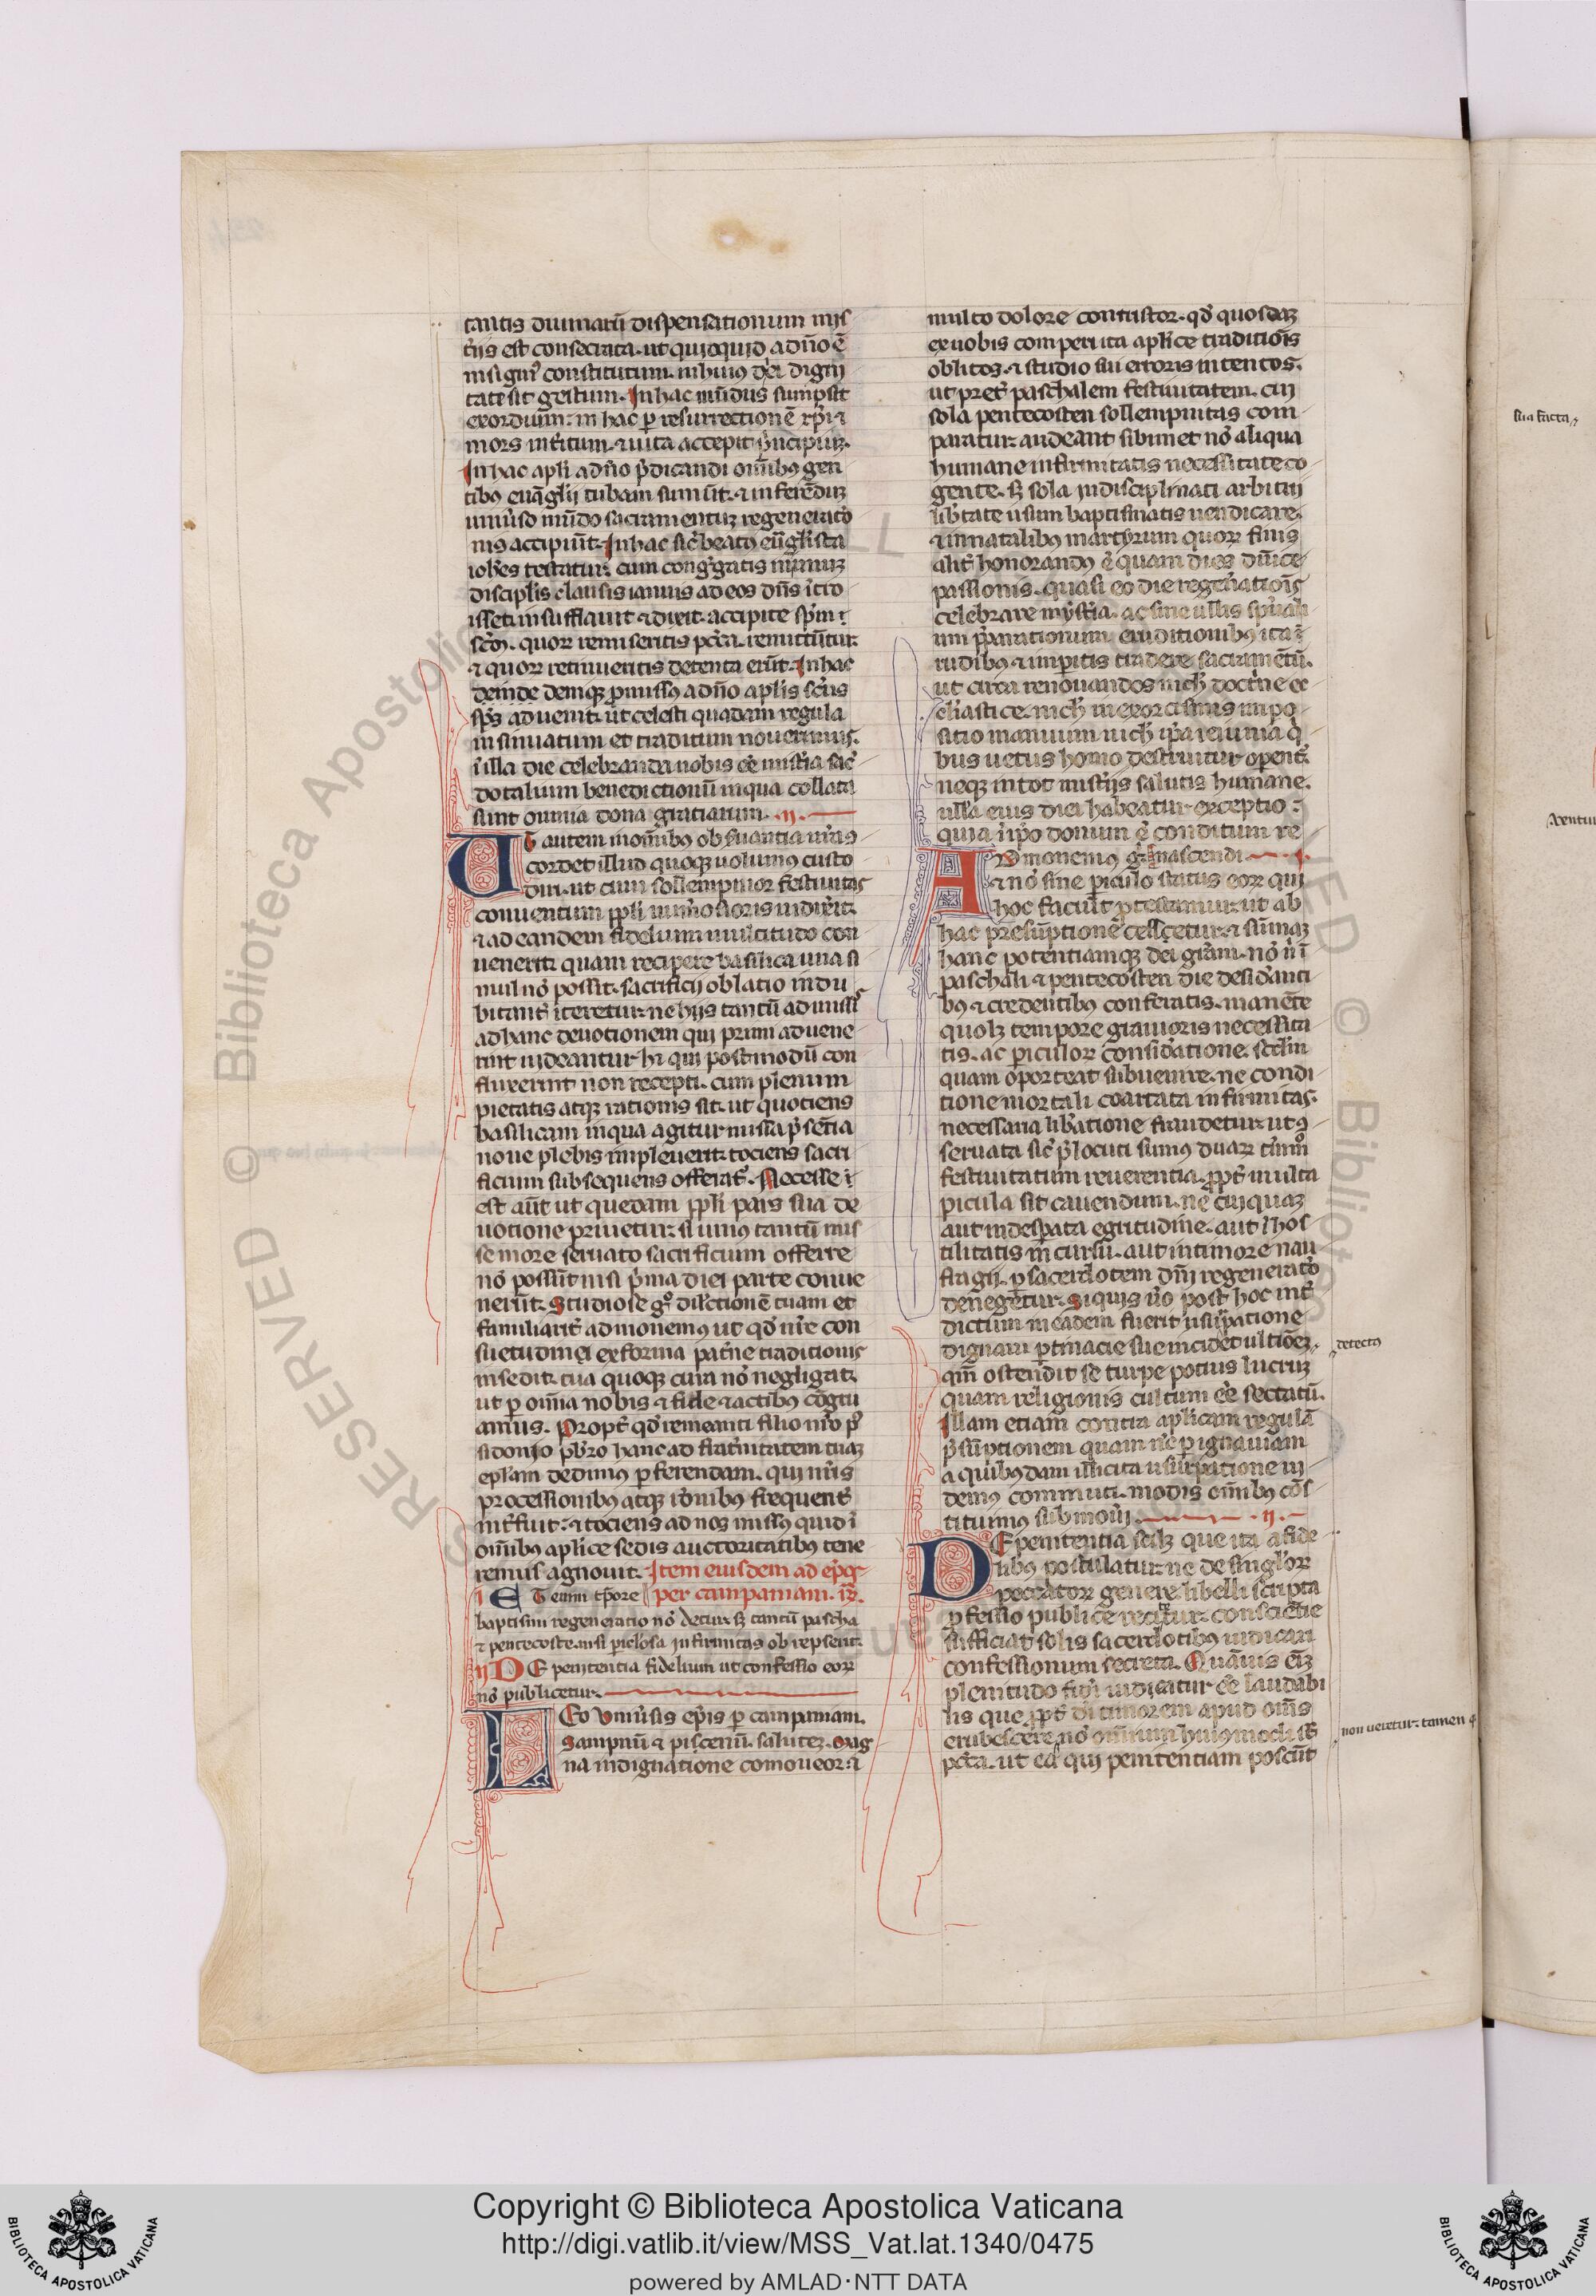 tantis diuinarū dispensationum mis
t̉iis est consecrata. ut quicquid a dn̄o ē
insigni᷒ constitutum. in huius diei digni
tate sit gestum. In hac mūdus sumpsit
exordium: in hac p̱ resurrectionē xp̄i ⁊
mors int̉itum. ⁊ uita accepit p̉ncipiuꝫ.
In hac apl̄i a dn̄o p̄dicandi om̄ibꝯ gen
tibꝯ euāglij tubam sumūt. ⁊ inferēduꝫ
uniủso mūdo sacramentuꝫ regenerato̓
nis accipiūt. In hac sic̄ beatꝯ eūgl̄ista
ioh̄es testatur. cum cong̉gatis
disciplis clausis ianuis ad eos dn̄s ītro
isset: insufflauit ⁊ dixit. accipite sp̄m
sc̄m. quoꝝ remiseritis pc̄ca. remittūtur
⁊ quoꝝ retinueritis detenta erūt. In hac
deinde deniqꝫ p̱missꝯ a dn̄o aplis sc̄us
sp̄s aduenit. ut celesti quadam regula
insinuatum et traditum nouerimus.
ī illa die celebranda nobis eē mist̉ia sac̉
dotalium benedictionū in qua collata
sunt omnia dona gratiarum. .ij.
UT autem in om̄ibꝯ obs̉uantia nr̄a ꝯ
cordet illud quoqꝫ uolumꝯ custo
diri. ut cum sollempnior festiuitas
conuentum ppl̄i num̉osioris indix̉it.
⁊ ad eandem fidelium multitudo con
uenerit. quam recipere basilica una si
mul nō possit. sacrificij oblatio indu
bitant̉ iteretur. ne hijs tantū admissi᷒
ad hanc deuotionem qui primi aduene
rint uideantur hi qui postmodū con
fluxerint non recepti. cum plenum
pietatis atqꝫ rationis sit. ut quotiens
basilicam in qua agitur missa p̄sētia
noue plebis impleuerit. tociens sacri
ficium subsequens offerat᷒. Necesse
est aūt ut quedam ppl̄i pars sua de
uotione priuetur. si unius tantū mis
se more seruato sacrificium offerre
nō possūt nisi p̉ma diei parte conue
nerūt. Studiose g̊ dil̄ctionē tuam et
familiarit̉ admonemꝯ ut qd̄ nr̄e con
suetudini ex forma pat̉ne traditionis
insedit. tua quoqꝫ cura nō negligat.
ut p̱ om̄ia nobis ⁊ fide ⁊ actibꝯ cōgru
amus. Propt̉ qd̄ remeanti filio nr̄o pos
sidonio p̄br̄o hanc ad frat̉nitatem tuaꝫ
epl̄am dedimꝯ p̱ferendam. qui nr̄is
processionibꝯ atqꝫ ordinibꝯ frequent̉
int̉fuit. ⁊ tociens ad nos missꝯ quid ī
om̄ibꝯ aplice sedis auctoritatibꝯ tene
remus agnouit. Item eiusdem ad ep̄os
I ET eum tp̄ore per campaniam.
baptismi regeneratio nō detur. sꝫ tantū pascha
⁊ pentecoste. nisi pic̄losa infirmitas obrepserit.
ij DE penitentia fidelium ut confessio eoꝝ
nō publicetur.
LEo Vniủsis ep̄is p̱ campaniam.
Sampniū ⁊ piscenū. saluteꝫ. Mag
na indignatione comoueor. ⁊
multo dolore contristor. qd̄ quosdaꝫ
ex uobis comperi ita aplice traditiōis
oblitos. ⁊ studio sui erroris intentos.
ut pret̉ paschalem festiuitatem. cui
sola pentecosten sollempnitas com
paratur. audeant sibimet nō aliqua
humane infirmitatis necessitate co
gente. sꝫ sola indisciplinati arbitrij
lib̉tate usum baptismatis uendicare.
⁊ in natalibꝯ martyrum quoꝝ finis
alit̉ honorandꝯ ē quam dies dn̄ice
passionis. quasi eo die regen̉atiōis
celebrare myst̉ia. ac sine ullis sp̄uali
um p̄parationum eruditionibꝯ ita
rudibꝯ ⁊ imp̱itis tradere sacramētū.
ut circa renouandos nich̄ doct̉ne ec
cl̄iastice. nich̄ in exorcismis impo
sitio manuum. nich̄ ip̄a ieiunia q̉
bus uetus homo destruitur. operet᷒.
neqꝫ in tot mist̉ijs salutis humane.
ulla eius diei habeatur exceptio
quia in ip̄o donum ē conditum re
ADmonemꝯ g̊ nascendi .I.
⁊ nō sine p̱iculo status eoꝝ qui
hoc faciūt p̱testamur. ut ab
hac presūptione cessetur. ⁊ sūmaꝫ
hanc potentiamqꝫ dei grām. nō n̉ ī
paschali ⁊ pentecosten die desid̉anti
bꝯ ⁊ credentibꝯ conferatis. manēte
quolꝫ tempore grauioris necessita
tis. ac p̱iculoꝝ consid̉atione. scd̄m
quam oporteat subuenire. ne condi
tione mortali coartata infirmitas.
necessaria lib̉atione fraudetur. ut ꝯ
seruata sic̄ p̄locuti sumus duaꝝ t̉mino
festiuitatum reuerentia. ꝓpt̉ multa
p̱icula sit cauendum. ne cuiquaꝫ
aut in desp̱ata egritudine. aut ī hos
tilitatis incursu. aut in timore nau
fragij. p̱ sacerdotem dn̄i regenerato̓
denegetur. Siquis ủo post hoc int̉
dictum in eadem fuerit usurpatione
dignam p̱tinacie sue incidet ultōeꝫ.
qm̄ ostendit se turpe potius lucruꝫ
quam religionis cultum eē sectatū.
Illam etiam contra aplicam regulā
p̄sūptionem quam nr̄e p̱ ignauiam
a quibꝯdam illicita usurpatione ui
demꝯ commiti. modis om̄ibꝯ cōs
tituimꝯ submoueri. .ij.
DE penitentia scilꝫ que ita a fide
libꝯ postulatur. ne de singuloꝝ
peccatoꝝ genere libelli scripta
ꝓfessio publice recitetur. consciētie
sufficiat solis sacerdotibꝯ iudicari
confessionum secreta. Quāuis eīꝫ
plenitudo fidei uideatur eē laudabi
lis que ꝓpt̉ dī timorem apud om̄s
erubescere nō om̄ium huiusmodi st̄
pc̄ca. ut ea qui penitentiam poscūt
detectus
non ueretur. tamen q
sua facta
Copyright © Biblioteca Apostolica Vaticana
http://digi.vatlib.it/view/MSS_Vat.lat.1340/0475
powered by AMLAD·NTT DATA
BIBLIOTECA APOSTOLICA VATICANA
BIBLIOTECA APOSTOLICA VATICANA